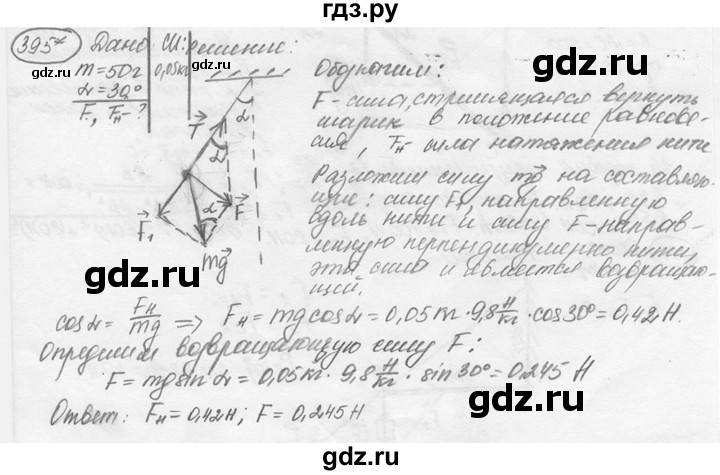 гдз.ру
395* Дано СИ: Решение:
m=50г 0,05кг
α=30°
F, Fн-?
Обозначим:
F-сила, стремящаяся вернуть
шарик в положение равнове-
сия, Fн сила натяжения нити
Разложим силу mg на составляю-
щие: силу F₁, направленную
вдоль нити и силу F-направ-
ленную перпендикулярно нити,
эта сила и является возвращаю-
щей.
α
T
α
α
F
F₁
mg
cosα = Fн/mg ⇒ Fн = mgcosα = 0,05кг · 9,8 Н/кг · cos30° = 0,42Н.
Определим возвращающую силу F:
F = mgsinα = 0,05кг · 9,8 Н/кг · sin30° = 0,245 Н
Ответ: Fн = 0,42Н; F = 0,245Н
gdz.ru
gdz.ru
gdz.ru
gdz.ru
gdz.ru
gdz.ru
gdz.ru
гдз.ру